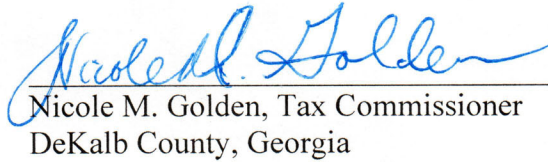 Nicole M. Golden
Nicole M. Golden, Tax Commissioner
DeKalb County, Georgia